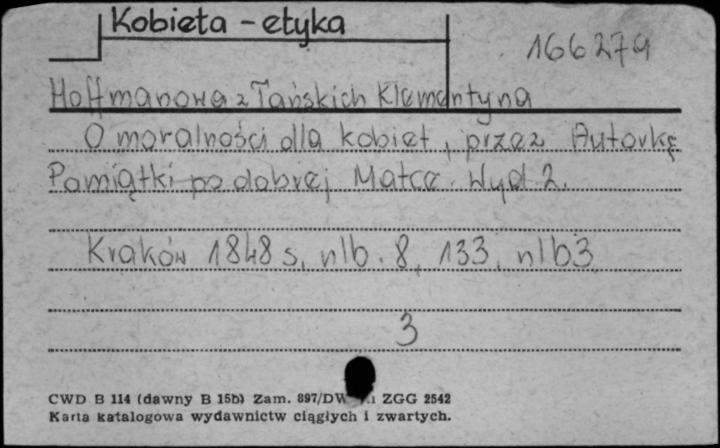 Kobieta - etyka
166279
Hoffmanowa z Tańskich Klementyna
O moralności dla kobiet, przez Autorkę
Pamiątki po dobrej Matce. Wyd 2.
Kraków 1848 s. nlb. 8, 133, nlb 3
3
CWD B 114 (dawny B 15b) Zam. 897/DW ZGG 2542
Karta katalogowa wydawnictw ciągłych i zwartych.